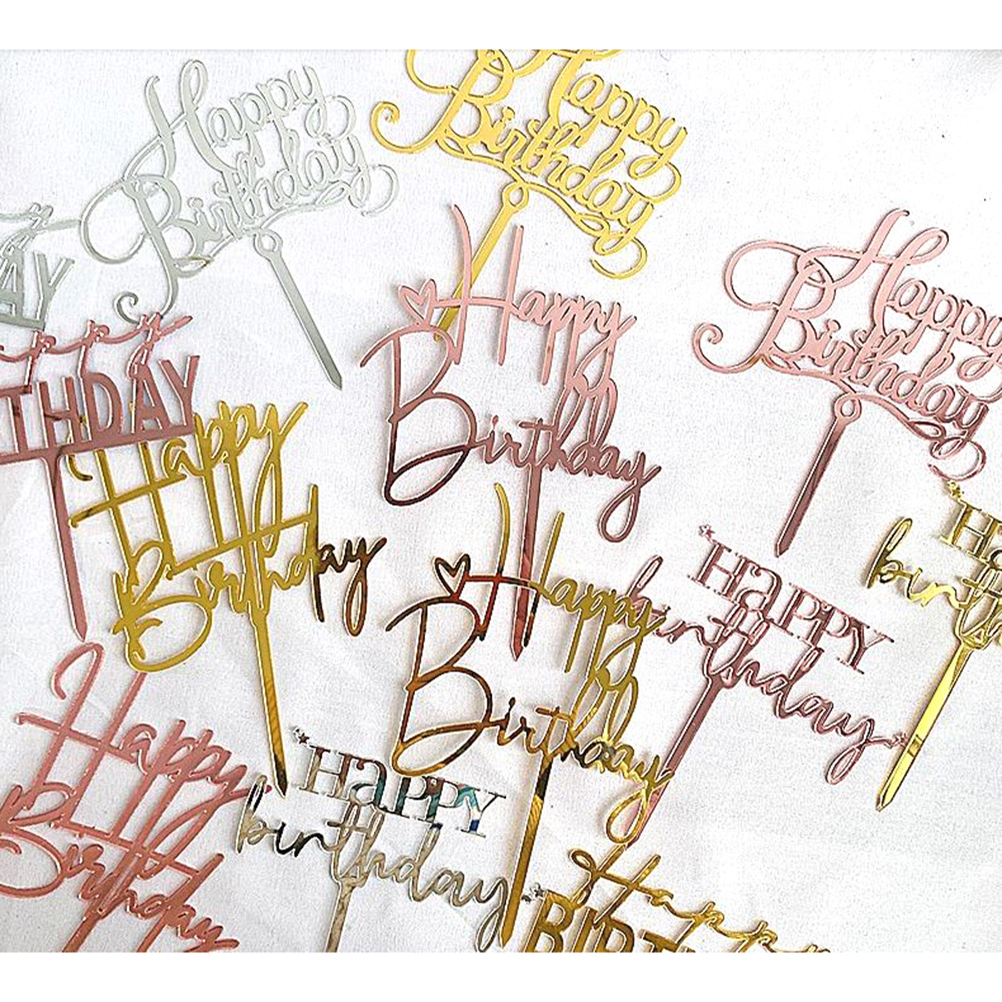 Happy
Birthday
Happy
Birthday
AY
Happy
Birthday
Happy
Birthday
ppy
THDAY
Happy
Birthday
Happy
Birthday
Happy
birthday
Ha
birth
Happy
Birthday
Happy
birthday
Happy
BIRT